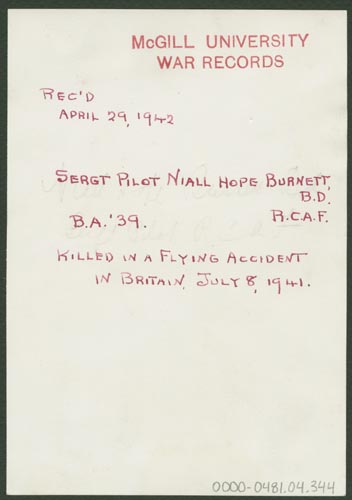 McGILL UNIVERSITY
WAR RECORDS
REC'D
APRIL 29, 1942
SERGT PILOT NIALL HOPE BURNETT,
B.D.
B.A. '39. R.C.A.F.
KILLED IN A FLYING ACCIDENT
IN BRITAIN, JULY 8, 1941.
0000-0481.04.344